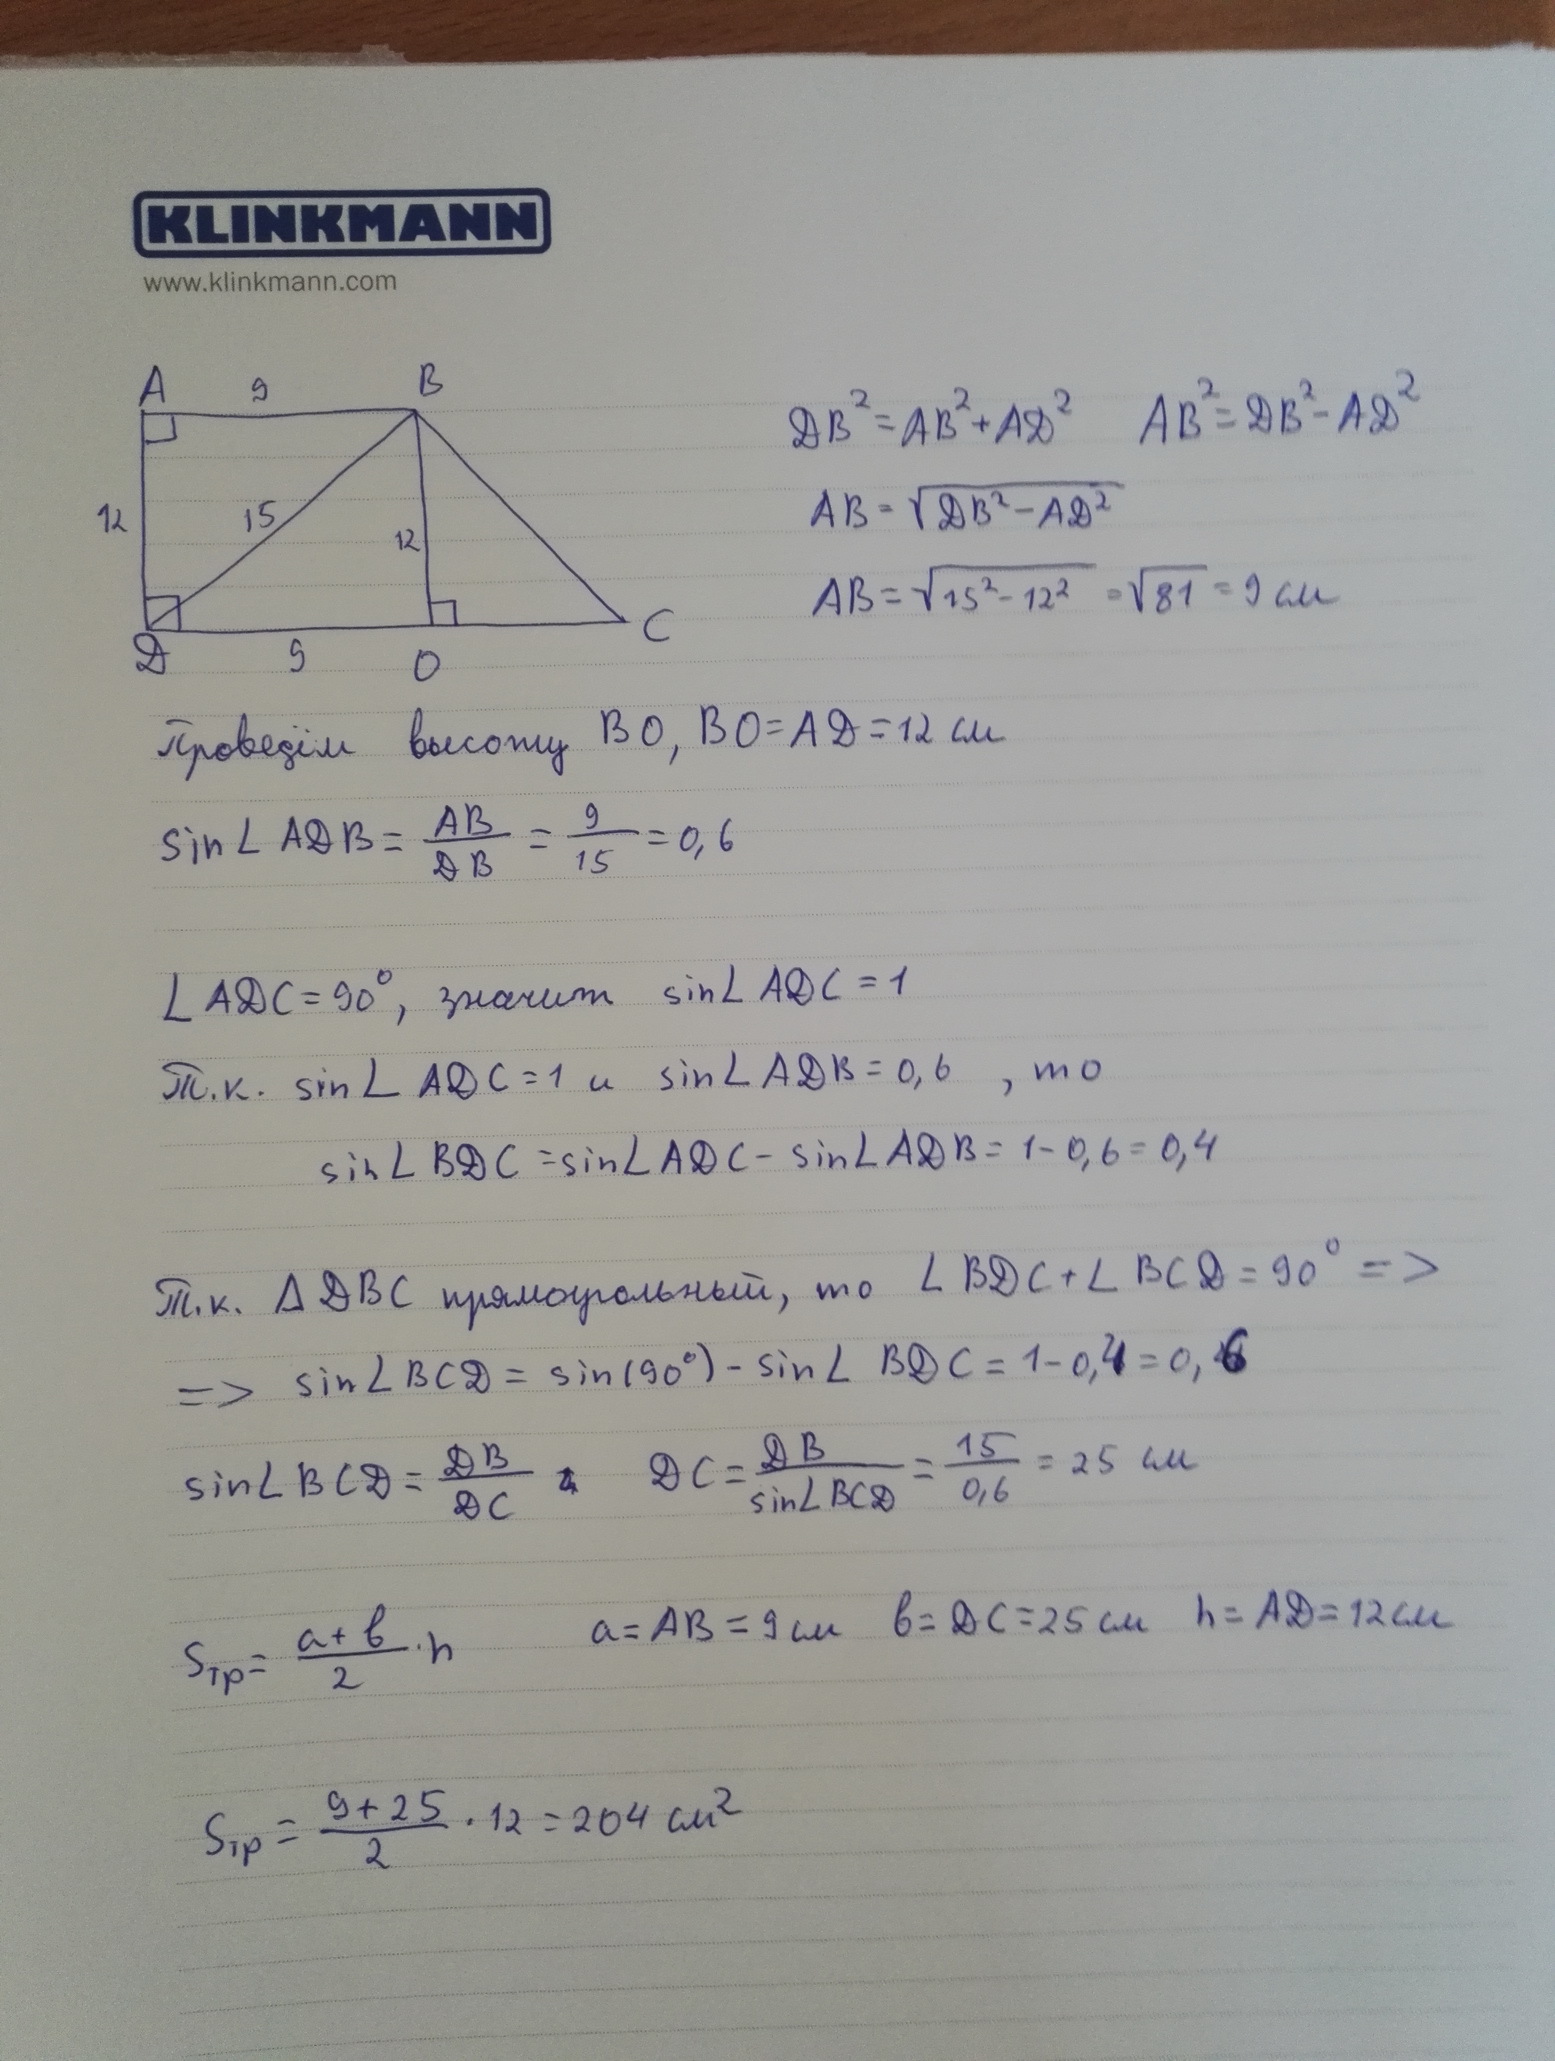 KLINKMANN
www.klinkmann.com
A 9 B
12 15 12
D 9 O C
DB² = AB² + AD² AB² = DB² - AD²
AB = √(DB² - AD²)
AB = √(15² - 12²) = √81 = 9 см
Проведём высоту BO, BO = AD = 12 см
sin∠ADB = AB/DB = 9/15 = 0,6
∠ADC = 90°, значит sin∠ADC = 1
Т.к. sin∠ADC = 1 и sin∠ADB = 0,6 , то
sin∠BDC = sin∠ADC - sin∠ADB = 1 - 0,6 = 0,4
Т.к. ΔDBC прямоугольный, то ∠BDC + ∠BCD = 90° =>
=> sin∠BCD = sin(90°) - sin∠BDC = 1 - 0,4 = 0,6
sin∠BCD = DB/DC DC = DB/sin∠BCD = 15/0,6 = 25 см
Sтр = (a + b)/2 · h a = AB = 9 см b = DC = 25 см h = AD = 12 см
Sтр = (9 + 25)/2 · 12 = 204 см²